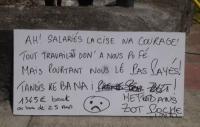 AH! SALARIÉS LACISE NA COURAGE!
TOUT TRAVAIL DON' A NOUS
MAIS POURTANT NOUS LÉ PAS PAYÉS!
TANDIS KE BANA I
1345€ brut
au bout de 25 ans
MET DANS
ZOT POCHE